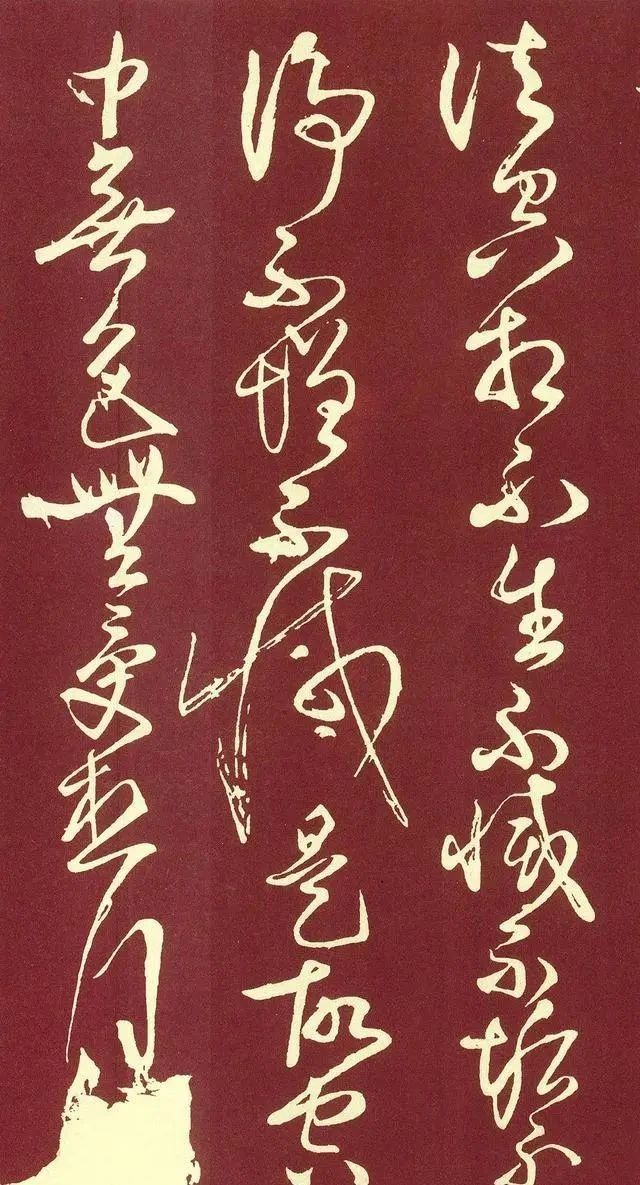 法空相不生不滅不垢不
淨不增不減是故空
中無色無受想行